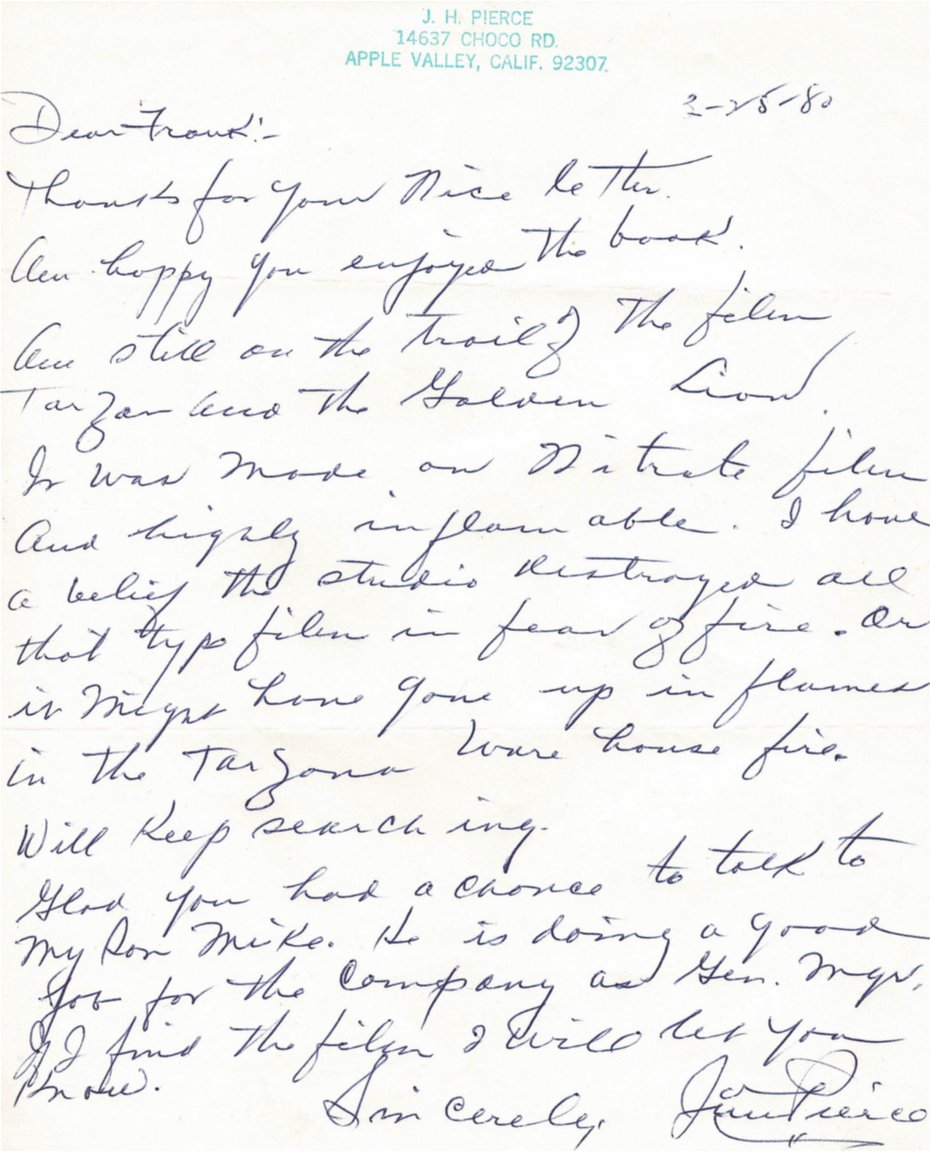 J. H. PIERCE
14637 CHOCO RD.
APPLE VALLEY, CALIF. 92307.
2-25-80
Dear Frank:-
Thanks for your Nice letter.
Am happy you enjoyed the book.
Am still on the trail of the film
Tarzan and the Golden Lion.
It was made on Nitrate film
And highly inflamable. I have
a belief the studio destroyed all
that type film in fear of fire. Or
it Might have gone up in flames
in the Tarzana Ware house fire.
Will Keep search ing.
Glad you had a chance to talk to
My Son Mike. He is doing a good
Job for the Company as Gen. Mgr.
If I find the film I will let you
Know.
Sincerely,
Jim Pierce